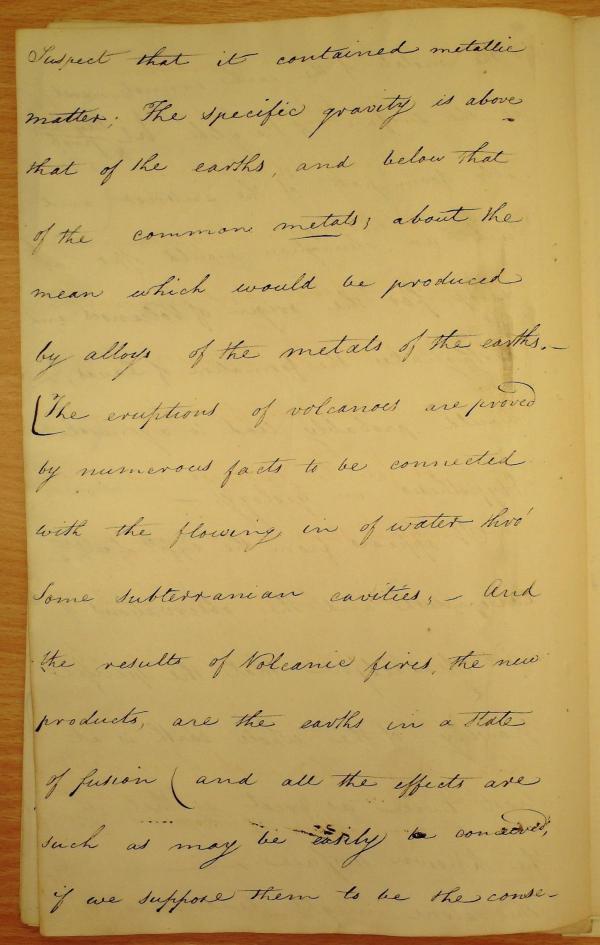 Suspect that it contained metallic
matter; The specific gravity is above
that of the earths, and below that
of the common metals; about the
mean which would be produced
by alloys of the metals of the earths.—
[The eruptions of volcanoes are proved
by numerous facts to be connected
with the flowing in of water thro'
Some subterranian cavities, — And
the results of Volcanic fires, the new
products, are the earths in a state
of fusion (and all the effects are
such as may be easily be conceived,
if we suppose them to be the conse-